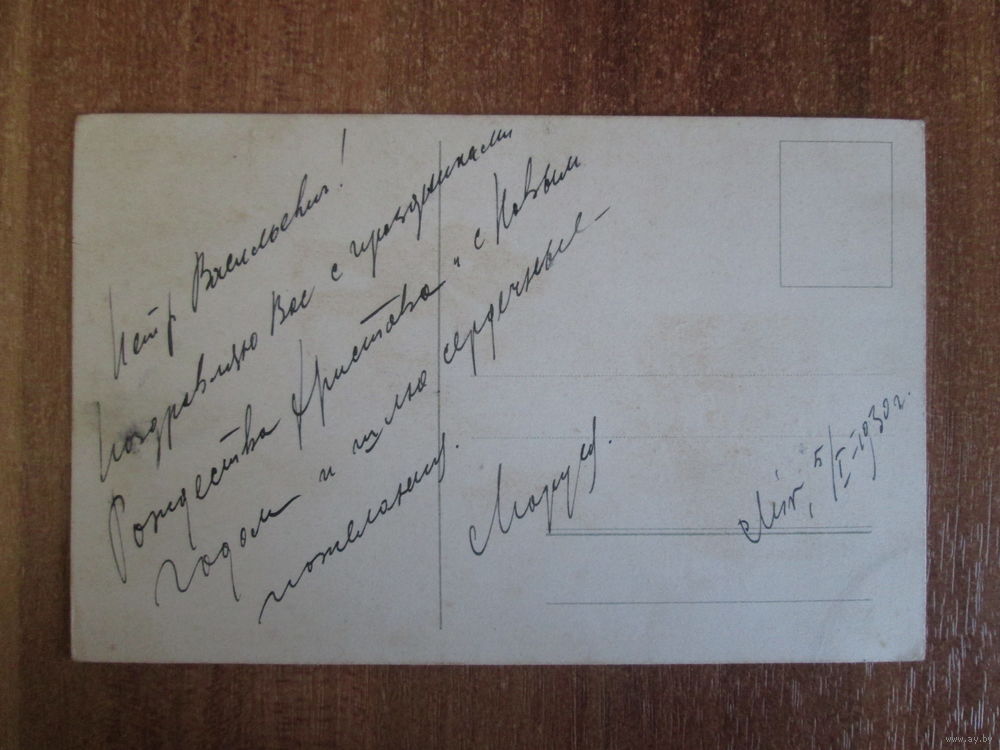 Петр Васильевич!
Поздравляю Вас с праздниками
Рождества Христова" с Новым
годом и шлю сердечные
пожелания.
Маруся.
Mir, 5/I-1930 г.
www.ay.by